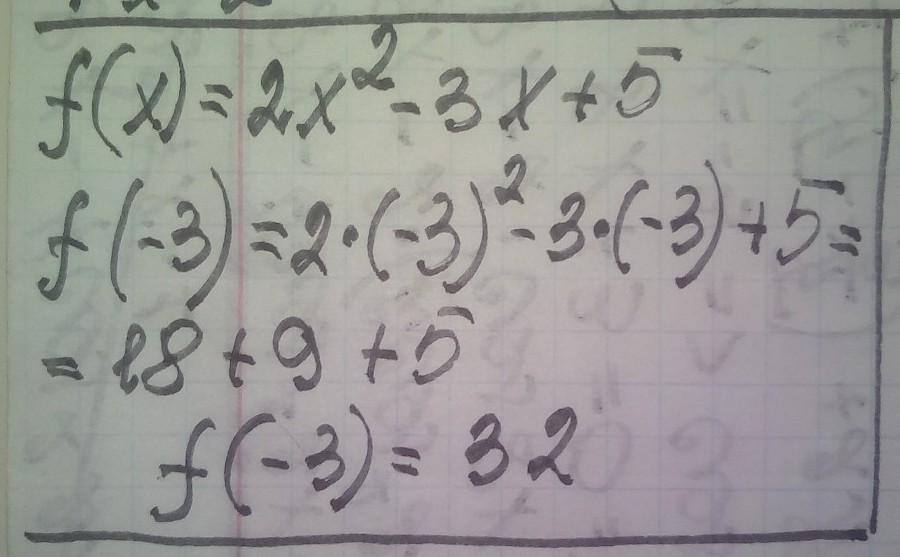 f(x) = 2x² - 3x + 5
f(-3) = 2·(-3)² - 3·(-3) + 5 =
= 18 + 9 + 5
f(-3) = 32